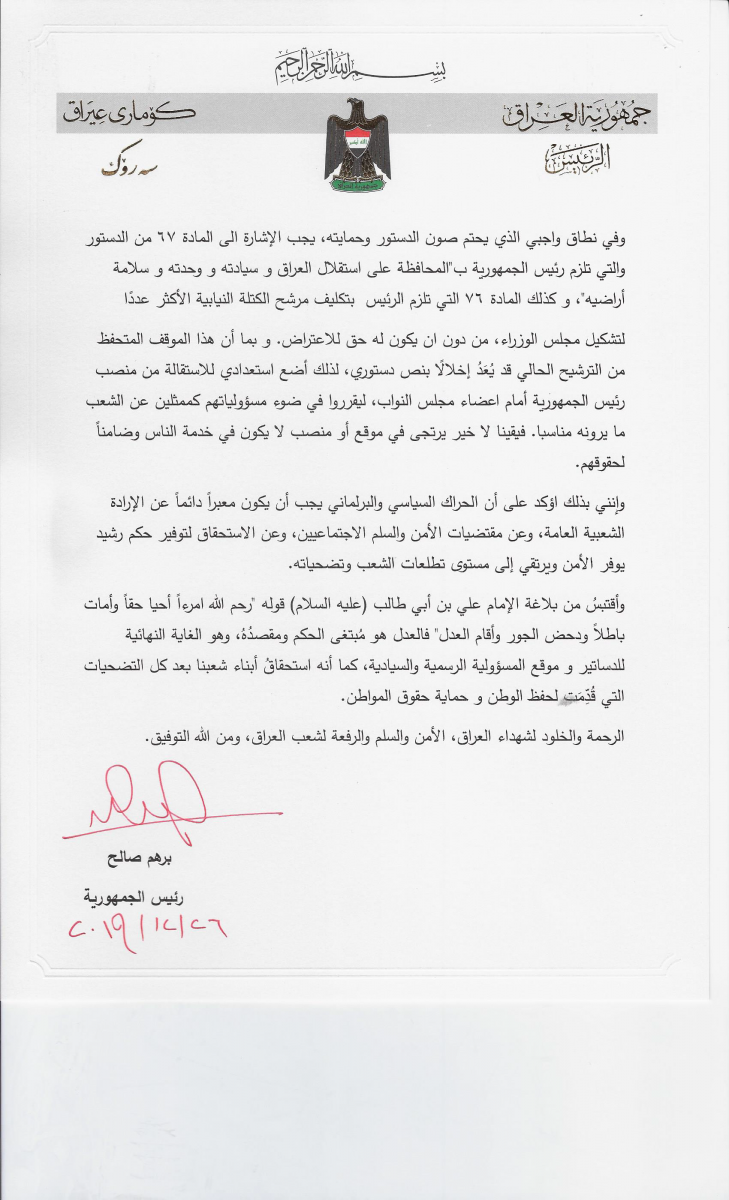 بسم الله الرحمن الرحيم
جمهورية العراق
كۆماری عێراق
الرئيس
سه روك
الله اكبر
جمهورية العراق
وفي نطاق واجبي الذي يحتم صون الدستور وحمايته، يجب الإشارة الى المادة ٦٧ من الدستور
والتي تلزم رئيس الجمهورية ب"المحافظة على استقلال العراق و سيادته و وحدته و سلامة
أراضيه"، و كذلك المادة ٧٦ التي تلزم الرئيس بتكليف مرشح الكتلة النيابية الأكثر عددًا
لتشكيل مجلس الوزراء، من دون ان يكون له حق للاعتراض. و بما أن هذا الموقف المتحفظ
من الترشيح الحالي قد يُعَدُ إخلالًا بنص دستوري، لذلك أضع استعدادي للاستقالة من منصب
رئيس الجمهورية أمام اعضاء مجلس النواب، ليقرروا في ضوءِ مسؤولياتهم كممثلين عن الشعب
ما يرونه مناسبا. فيقينا لا خير يرتجى في موقع أو منصب لا يكون في خدمة الناس وضامناً
لحقوقهم.
وإنني بذلك اؤكد على أن الحراك السياسي والبرلماني يجب أن يكون معبراً دائماً عن الإرادة
الشعبية العامة، وعن مقتضيات الأمن والسلم الاجتماعيين، وعن الاستحقاق لتوفير حكم رشيد
يوفر الأمن ويرتقي إلى مستوى تطلعات الشعب وتضحياته.
وأقتبسُ من بلاغة الإمام علي بن أبي طالب (عليه السلام) قوله "رحم الله امرءاً أحيا حقاً وأمات
باطلاً ودحض الجور وأقام العدل" فالعدل هو مُبتغى الحكم ومقصدُهُ، وهو الغاية النهائية
للدساتير و موقع المسؤولية الرسمية والسيادية، كما أنه استحقاقُ أبناء شعبنا بعد كل التضحيات
التي قُدِّمَت لحفظ الوطن و حماية حقوق المواطن.
الرحمة والخلود لشهداء العراق، الأمن والسلم والرفعة لشعب العراق، ومن الله التوفيق.
برهم صالح
رئيس الجمهورية
٢٠١٩/١٢/٢٦